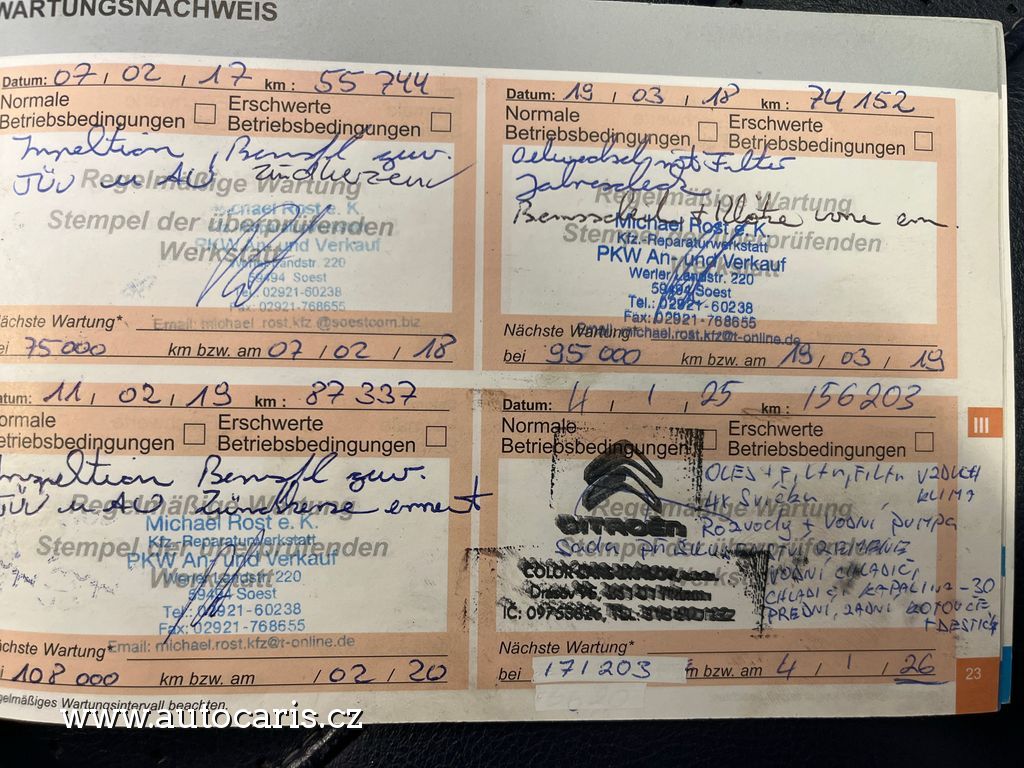 WARTUNGSNACHWEIS
Datum: 07 / 02 / 17 km : 55 744
Normale
Betriebsbedingungen
Erschwerte
Betriebsbedingungen
TÜV u AU
Regelmäßige Wartung
Stempel der überprüfenden
Werkstatt
chael Rost e. K.
PKW An- und Verkauf
Werler Landstr. 220
59494 Soest
Tel.: 02921-60238
Fax: 02921-768655
Email: michael_rost.kfz @soestcom.biz
Nächste Wartung*
ei 75000 km bzw. am 07 / 02 / 18
Datum: 19 / 03 / 18 km : 74 152
Normale
Betriebsbedingungen
Erschwerte
Betriebsbedingungen
mit Filter
Regelmäßige Wartung
Stempel der überprüfenden
Michael Rost e. K.
Kfz.-Reparaturwerkstatt
PKW An- und Verkauf
Werler Landstr. 220
59494 Soest
Tel.: 02921-60238
Fax: 02921-768655
Email: michael.rost.kfz@t-online.de
Nächste Wartung
bei 95 000 km bzw. am 19 / 03 / 19
11 / 02 / 19 km : 87 337
ormale
etriebsbedingungen
Erschwerte
Betriebsbedingungen
TÜV u AU
Regelmäßige Wartung
Stempel der überprüfenden
Michael Rost e. K.
Kfz.-Reparaturwerkstatt
PKW An- und Verkauf
Werler Landstr. 220
59494 Soest
Tel.: 02921-60238
Fax: 02921-768655
Email: michael.rost.kfz@t-online.de
ächste Wartung*
i 108 000 km bzw. am / 02 / 20
Datum: 4 / 1 / 25 km : 156203
Normale
Betriebsbedingungen
Erschwerte
Betriebsbedingungen
CITROËN
OLEJ + FILTR, FILTR VZDUCH
KLIMA
4x Svíčku
Rozvody + VODNÍ PUMPA
VODNÍ CHLADIČ,
KAPALINA -30
PŘEDNÍ, ZADNÍ KOTOUČE
+ DESTIČKY
Nächste Wartung*
bei 171203 m bzw. am 4 / 1 / 26
III
23
egelmäßiges Wartungsintervall beachten.
www.autocaris.cz